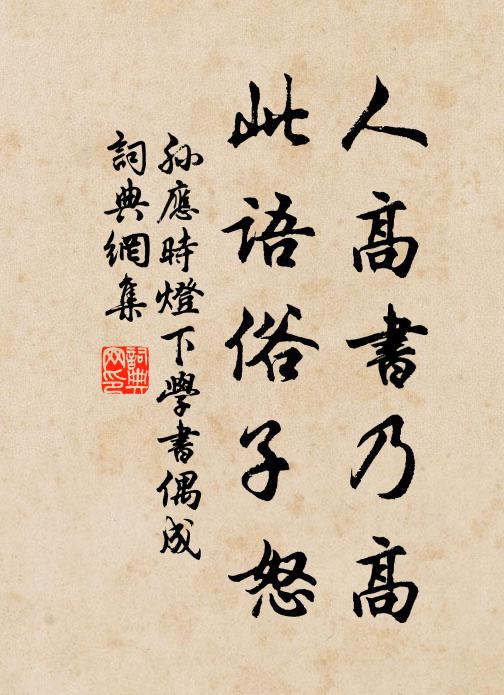 人高書乃高
此語俗子怒
孫應時燈下學書偶成
詞典網集
詞典網印